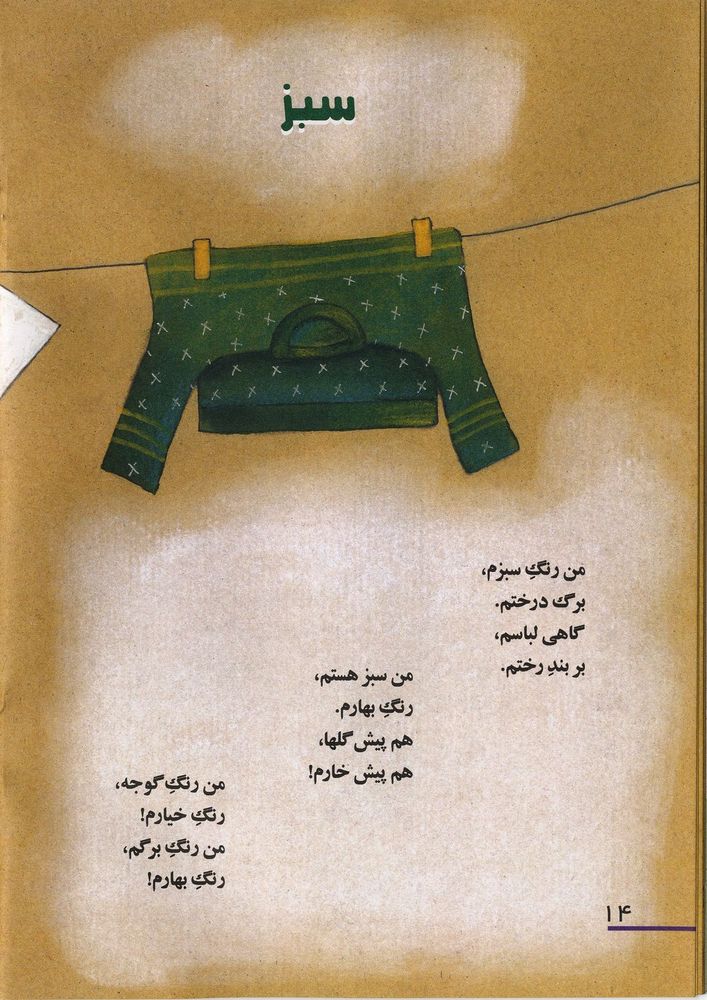 سبز
من رنگِ سبزم،
برگ درختم.
گاهی لباسم،
بر بندِ رختم.
من سبز هستم،
رنگِ بهارم.
هم پیش گلها،
هم پیش خارم!
من رنگِ گوجه،
رنگِ خیارم!
من رنگِ برگم،
رنگِ بهارم!
۱۴